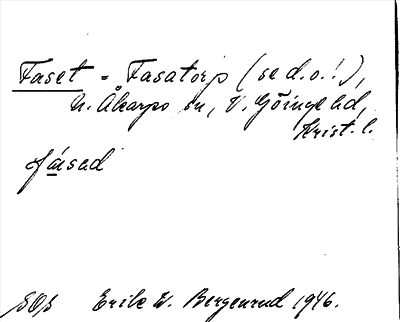 Faset = Fasatorp (se d.o.!),
N. Åkarps sn, V. Göinge hd,
Krist. l.
fásad
SOS Erik W. Bergenrud 1946.